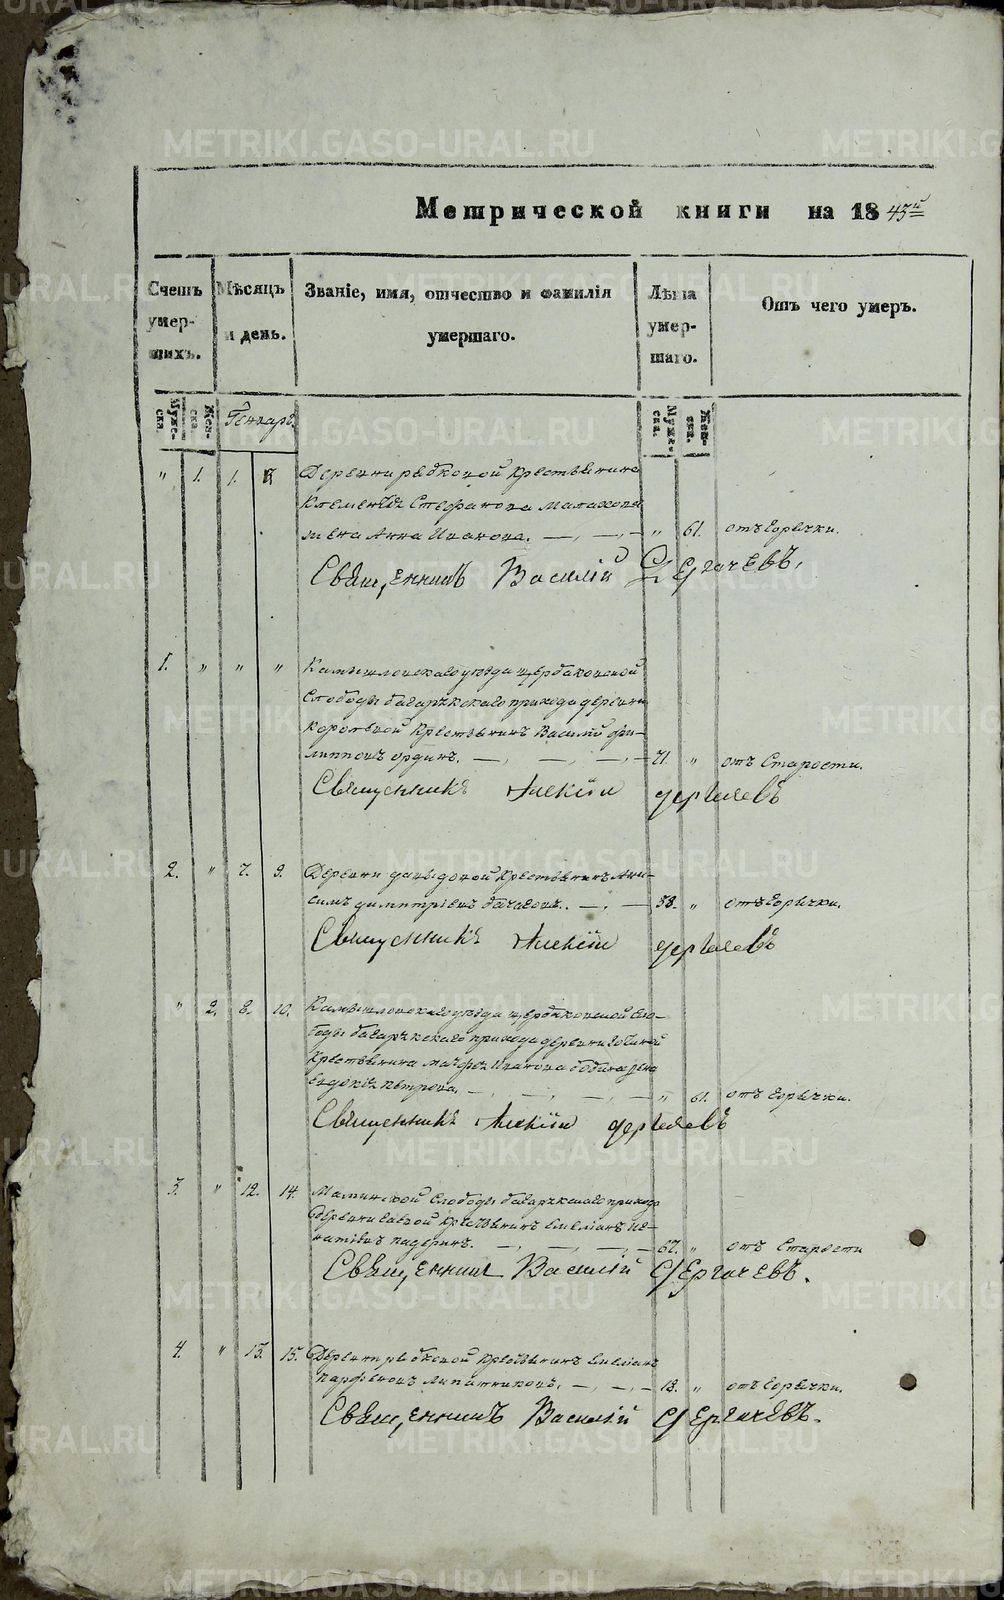 Метрической книги на 1843й
Счетъ умер-шихъ.
Мѣсяцъ и день.
Званіе, имя, отчество и фамилія умершаго.
Лѣта умер-шаго.
Отъ чего умеръ.
Муже-ска. Жен-ска. Генварь. Муже-ска. Жен-ска.
" 1. 1. Деревни рыбковой Крестьянина
Клементія Стефанова Малахова
жена Анна Иванова. " 61. отъ Горячки.
Священникъ Василій Дергачевъ.
1. " " " Камышловскаго уѣзда Щербаковской
Слободы багаряжскаго прихода деревни
Крестьянинъ Василій Фи-
липповъ 71. " отъ Старости.
Священникъ Алексій Дергачевъ
2. " 7. 9. Деревни давыдовой Крестьянинъ Ани-
симъ димитріевъ 58. " отъ Горячки.
Священникъ Алексій Дергачевъ
" 2. 8. 10. Камышловскаго уѣзда Щербаковской Сло-
боды багаряжскаго прихода деревни
Крестьянина Иванова жена
Евдокія Петрова. " 61. отъ Горячки.
Священникъ Алексій Дергачевъ
3. " 12. 14. Маминской Слободы багаряжскаго прихода
Деревни Крестьянинъ Емеліанъ Иг-
натіевъ падеринъ. 67. " отъ Старости
Священникъ Василій Дергачевъ.
4. " 13. 15. Деревни рыбковой Крестьянинъ Емеліанъ
Парфеновъ Липатниковъ. 18. " отъ Горячки.
Священникъ Василій Дергачевъ.
METRIKI.GASO-URAL.RU